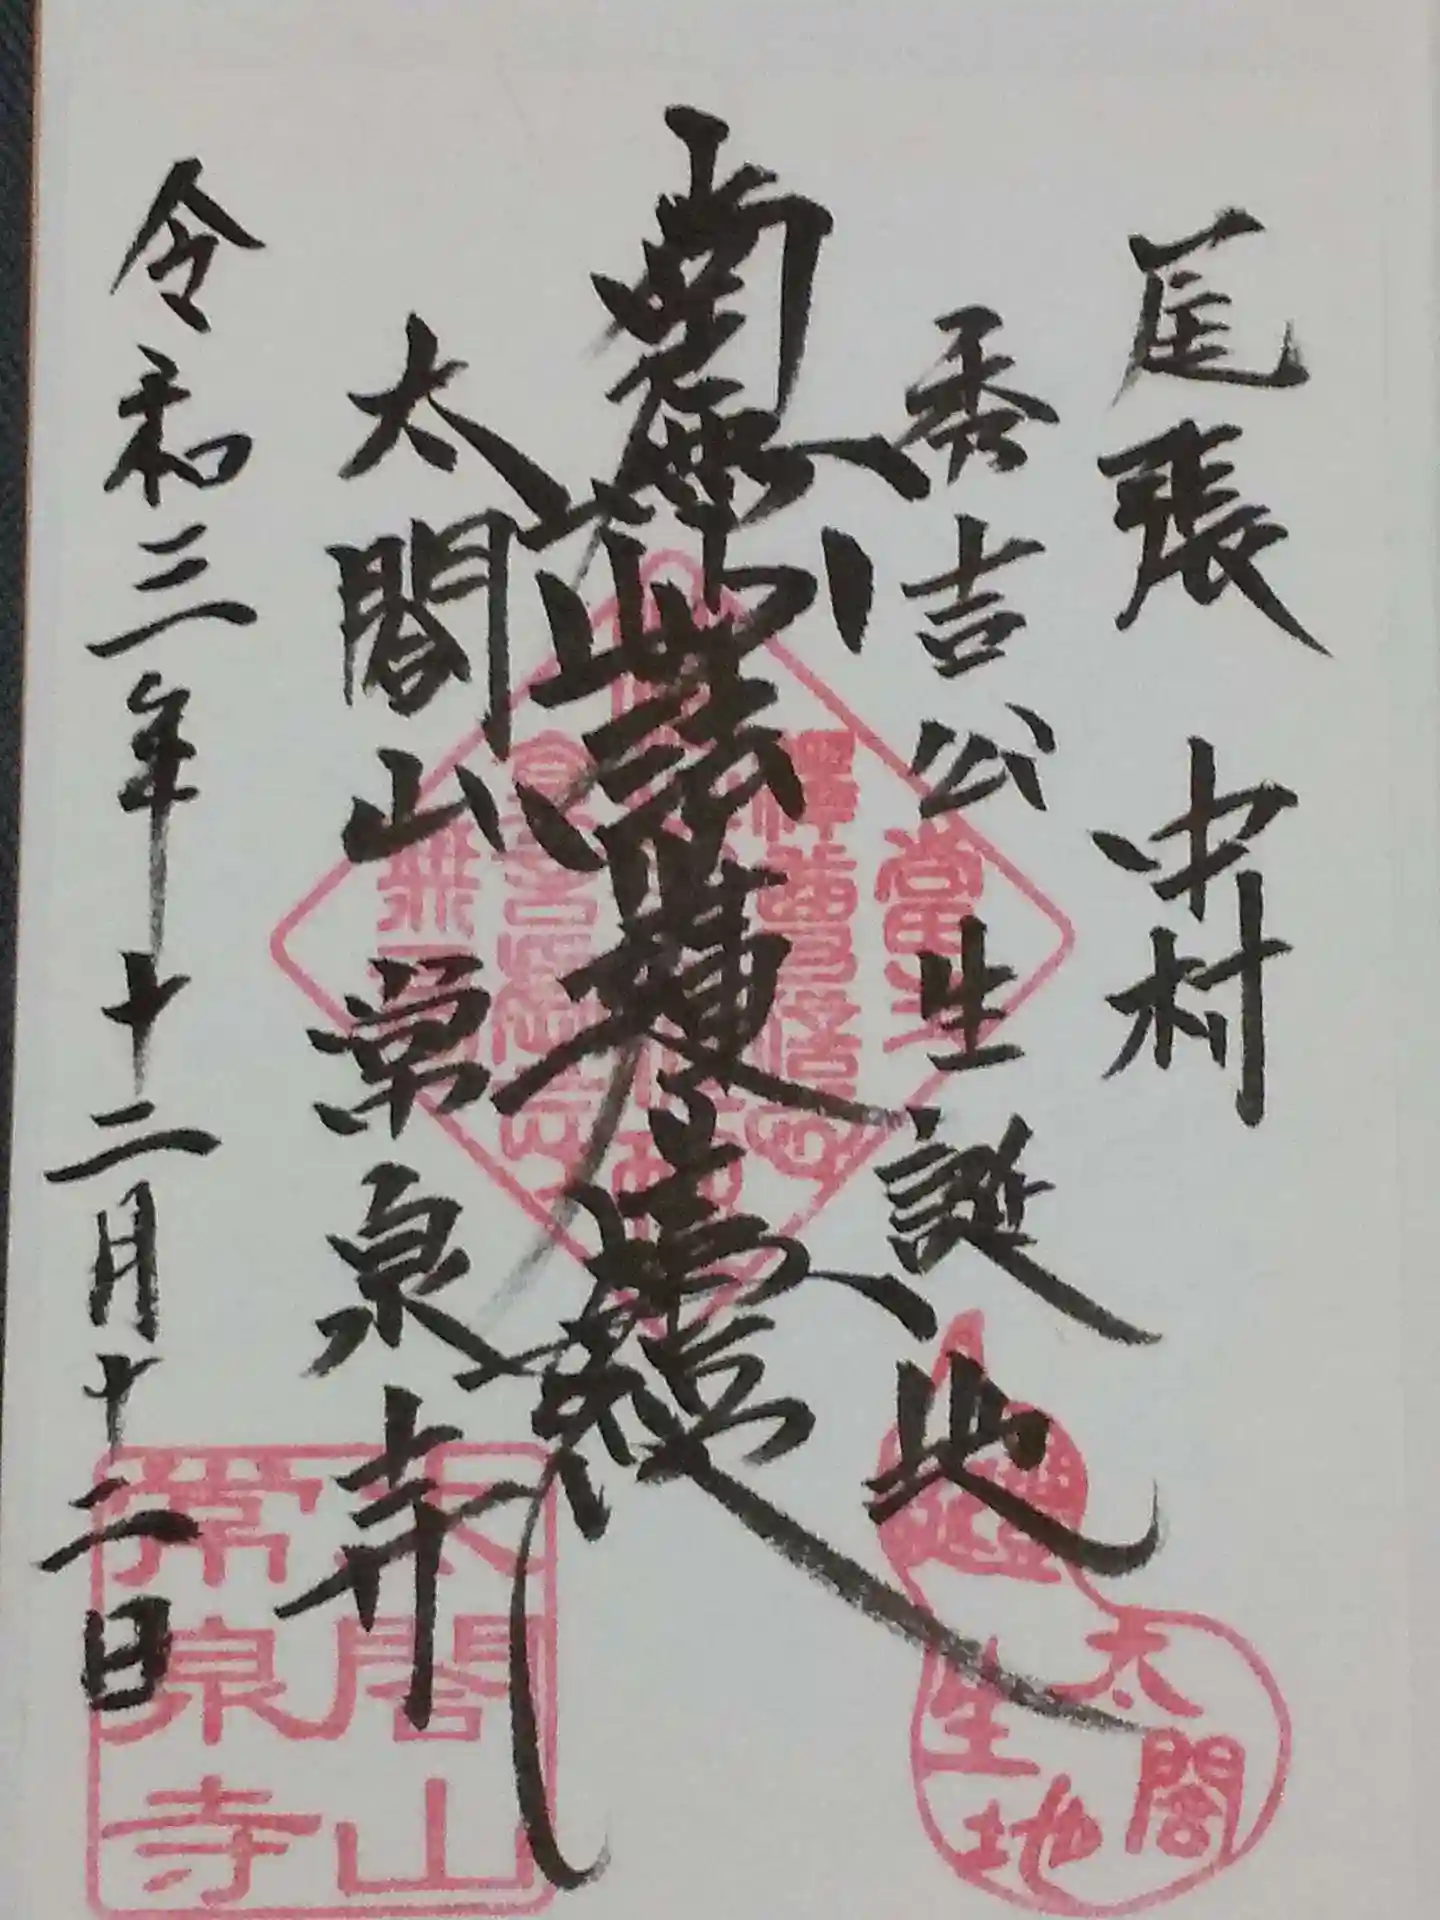 尾張 中村
秀吉公生誕地
南無妙法蓮華経
太閤山常泉寺
令和三年十二月十二日
太閤
生地
太閤山
常泉寺